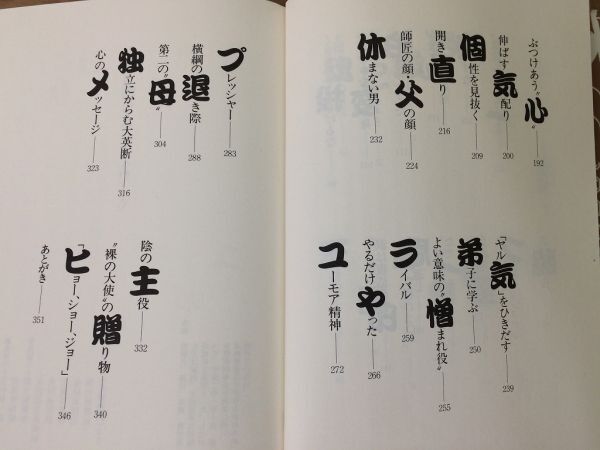 ぶつけあう〝心〟 192
伸ばす気配り 200
個性を見抜く 209
開き直り 216
師匠の顔・父の顔 224
休まない男 232
「ヤル気」をひきだす 239
弟子に学ぶ 250
よい意味の〝憎まれ役〟 255
ライバル 259
やるだけやった 266
ユーモア精神 272
プレッシャー 283
横綱の退き際 288
第二の〝母〟 304
独立にからむ大英断 316
心のメッセージ 323
陰の主役 332
〝裸の大使〟の贈り物 340
「ヒョー、ショー、ジョー」 346
あとがき 351